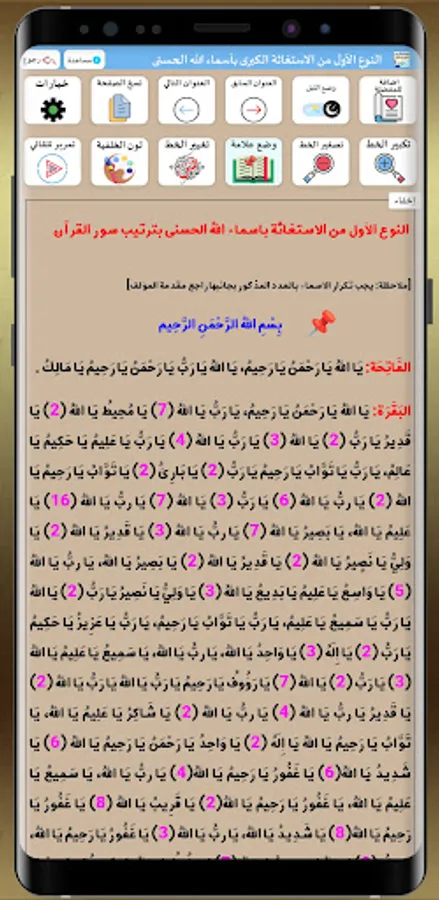 النوع الأول من الاستغاثة الكبرى بأسماء الله الحسنى
مساعدة
رجوع
اضافة للمفضلة
وضع الليل
العنوان السابق
العنوان التالي
نسخ الصفحة
خيارات
تكبير الخط
تصغير الخط
وضع علامة
تغيير الخط
لون الخلفية
تمرير تلقائي
إخفاء
النوع الأول من الاستغاثة باسماء الله الحسنى بترتيب سور القرآن
[ملاحظة: يجب تكرار الاسماء بالعدد المذكور بجانبها راجع مقدمة المؤلف]
بِسْمِ اللهِ الرَّحْمَنِ الرَّحِيمِ
الفَاتِحَة: يَا اللهُ يَا رَحْمَنُ يَا رَحِيمُ، يَا اللهُ يَا رَبُّ يَا رَحْمَنُ يَا رَحِيمُ يَا مَالِكُ .
البَقَرَة: يَا اللهُ يَا رَحْمَنُ يَا رَحِيمُ، يَا رَبُّ يَا اللهُ (7) يَا مُحِيطُ يَا اللهُ (2) يَا
قَدِيرُ يَا رَبُّ (2) يَا اللهُ (3) يَا رَبُّ يَا اللهُ (4) يَا رَبُّ يَا عَلِيمُ يَا حَكِيمُ يَا
عَالِمُ، يَا رَبُّ يَا تَوَّابُ يَا رَحِيمُ يَا رَبُّ (2) يَا بَارِئُ (2) يَا تَوَّابُ يَا رَحِيمُ يَا
اللهُ (2) يَا رَبُّ يَا اللهُ (6) يَا رَبُّ (3) يَا اللهُ (7) يَا رَبُّ يَا اللهُ (16) يَا
عَلِيمُ يَا اللهُ، يَا بَصِيرُ يَا اللهُ (7) يَا رَبُّ يَا اللهُ (3) يَا قَدِيرُ يَا اللهُ (2) يَا
وَلِيُّ يَا نَصِيرُ يَا اللهُ (2) يَا قَدِيرُ يَا اللهُ (2) يَا بَصِيرُ يَا اللهُ، يَا رَبُّ يَا اللهُ
(5) يَا وَاسِعُ يَا عَلِيمُ يَا بَدِيعُ يَا اللهُ (3) يَا وَلِيُّ يَا نَصِيرُ يَا رَبُّ (2) يَا اللهُ
يَا رَبُّ يَا سَمِيعُ يَا عَلِيمُ، يَا رَبُّ يَا تَوَّابُ يَا رَحِيمُ، يَا رَبُّ يَا عَزِيزُ يَا حَكِيمُ
يَا رَبُّ (2) يَا إِلَهُ (3) يَا وَاحِدُ يَا اللهُ، يَا رَبُّ يَا اللهُ، يَا سَمِيعُ يَا عَلِيمُ يَا اللهُ
(3) يَا رَبُّ (2) يَا اللهُ (7) يَا رَؤُوفُ يَا رَحِيمُ يَا رَبُّ يَا اللهُ يَا رَبُّ يَا اللهُ (2)
يَا قَدِيرُ يَا رَبُّ يَا اللهُ (4) يَا رَبُّ يَا اللهُ (2) يَا شَاكِرُ يَا عَلِيمُ يَا اللهُ، يَا
تَوَّابُ يَا رَحِيمُ يَا اللهُ يَا إِلَهُ (2) يَا وَاحِدُ يَا رَحْمَنُ يَا رَحِيمُ يَا اللهُ (6) يَا
شَدِيدُ يَا اللهُ(6) يَا غَفُورُ يَا رَحِيمُ يَا اللهُ(4) يَا رَبُّ يَا اللهُ، يَا سَمِيعُ يَا
عَلِيمُ يَا اللهُ، يَا غَفُورُ يَا رَحِيمُ يَا اللهُ(2) يَا قَرِيبُ يَا اللهُ (8) يَا غَفُورُ يَا
رَحِيمُ يَا اللهُ(8) يَا شَدِيدُ يَا اللهُ، يَا رَبُّ يَا اللهُ (3) يَا غَفُورُ يَا رَحِيمُ يَا اللهُ،